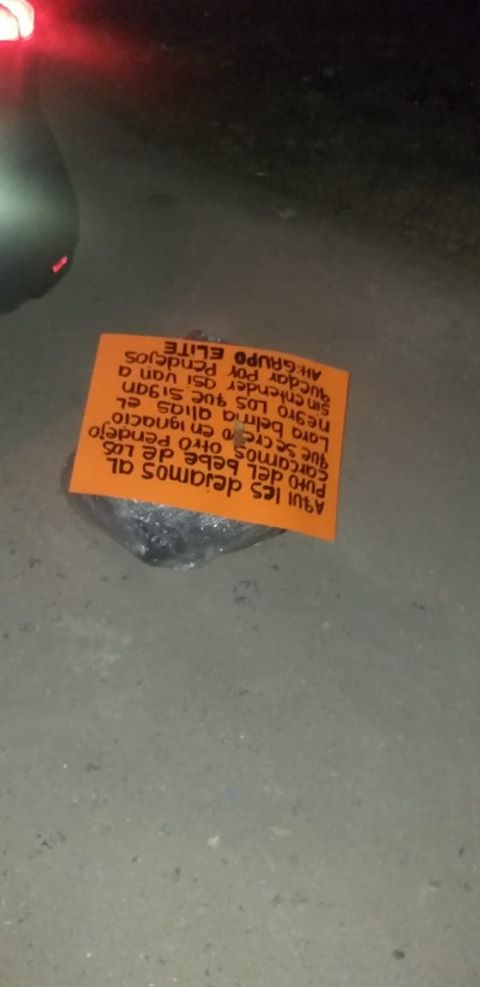 AQUI les dejamos AL
PUTO DEL bebe de LOS
carcamos otro Pendejo
que se creyo en ignacio
Lara belma alias EL
negro Los que sigan
sin entender asi van a
quedar por Pendejos
Att: GRUPO ELITE